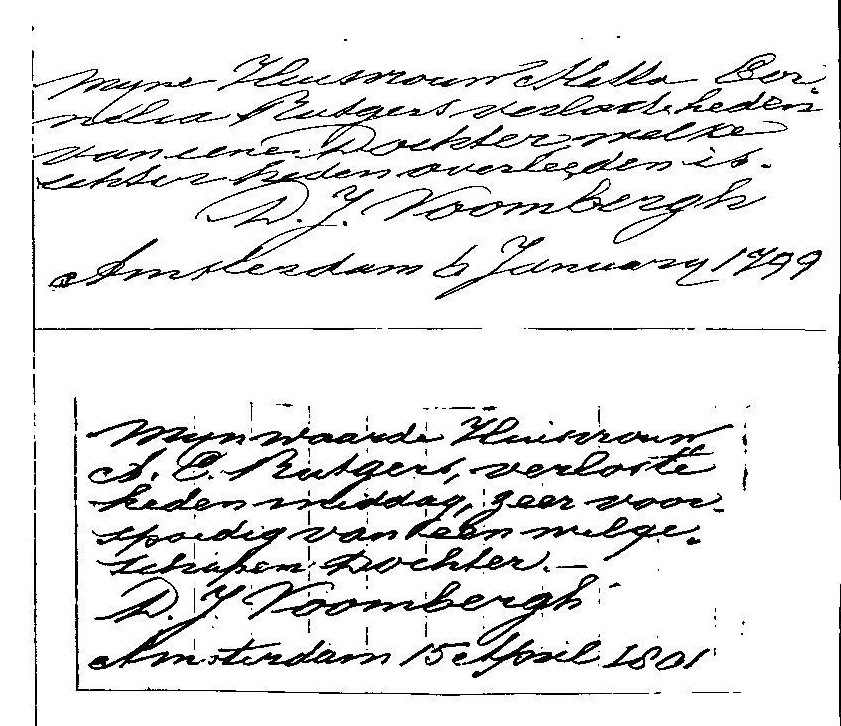 Myne Huisvrouw Aletta Cor-
nelia Rutgers verloste heden
van eene Dochter, welke
echter heden overleeden is.
D. J. Voombergh
Amsterdam 6 January 1799
Mijn waarde Huisvrouw
A. C. Rutgers, verloste
heden middag, zeer voor-
spoedig van een welge-
schapen Dochter. —
D. J. Voombergh
Amsterdam 15 April 1801